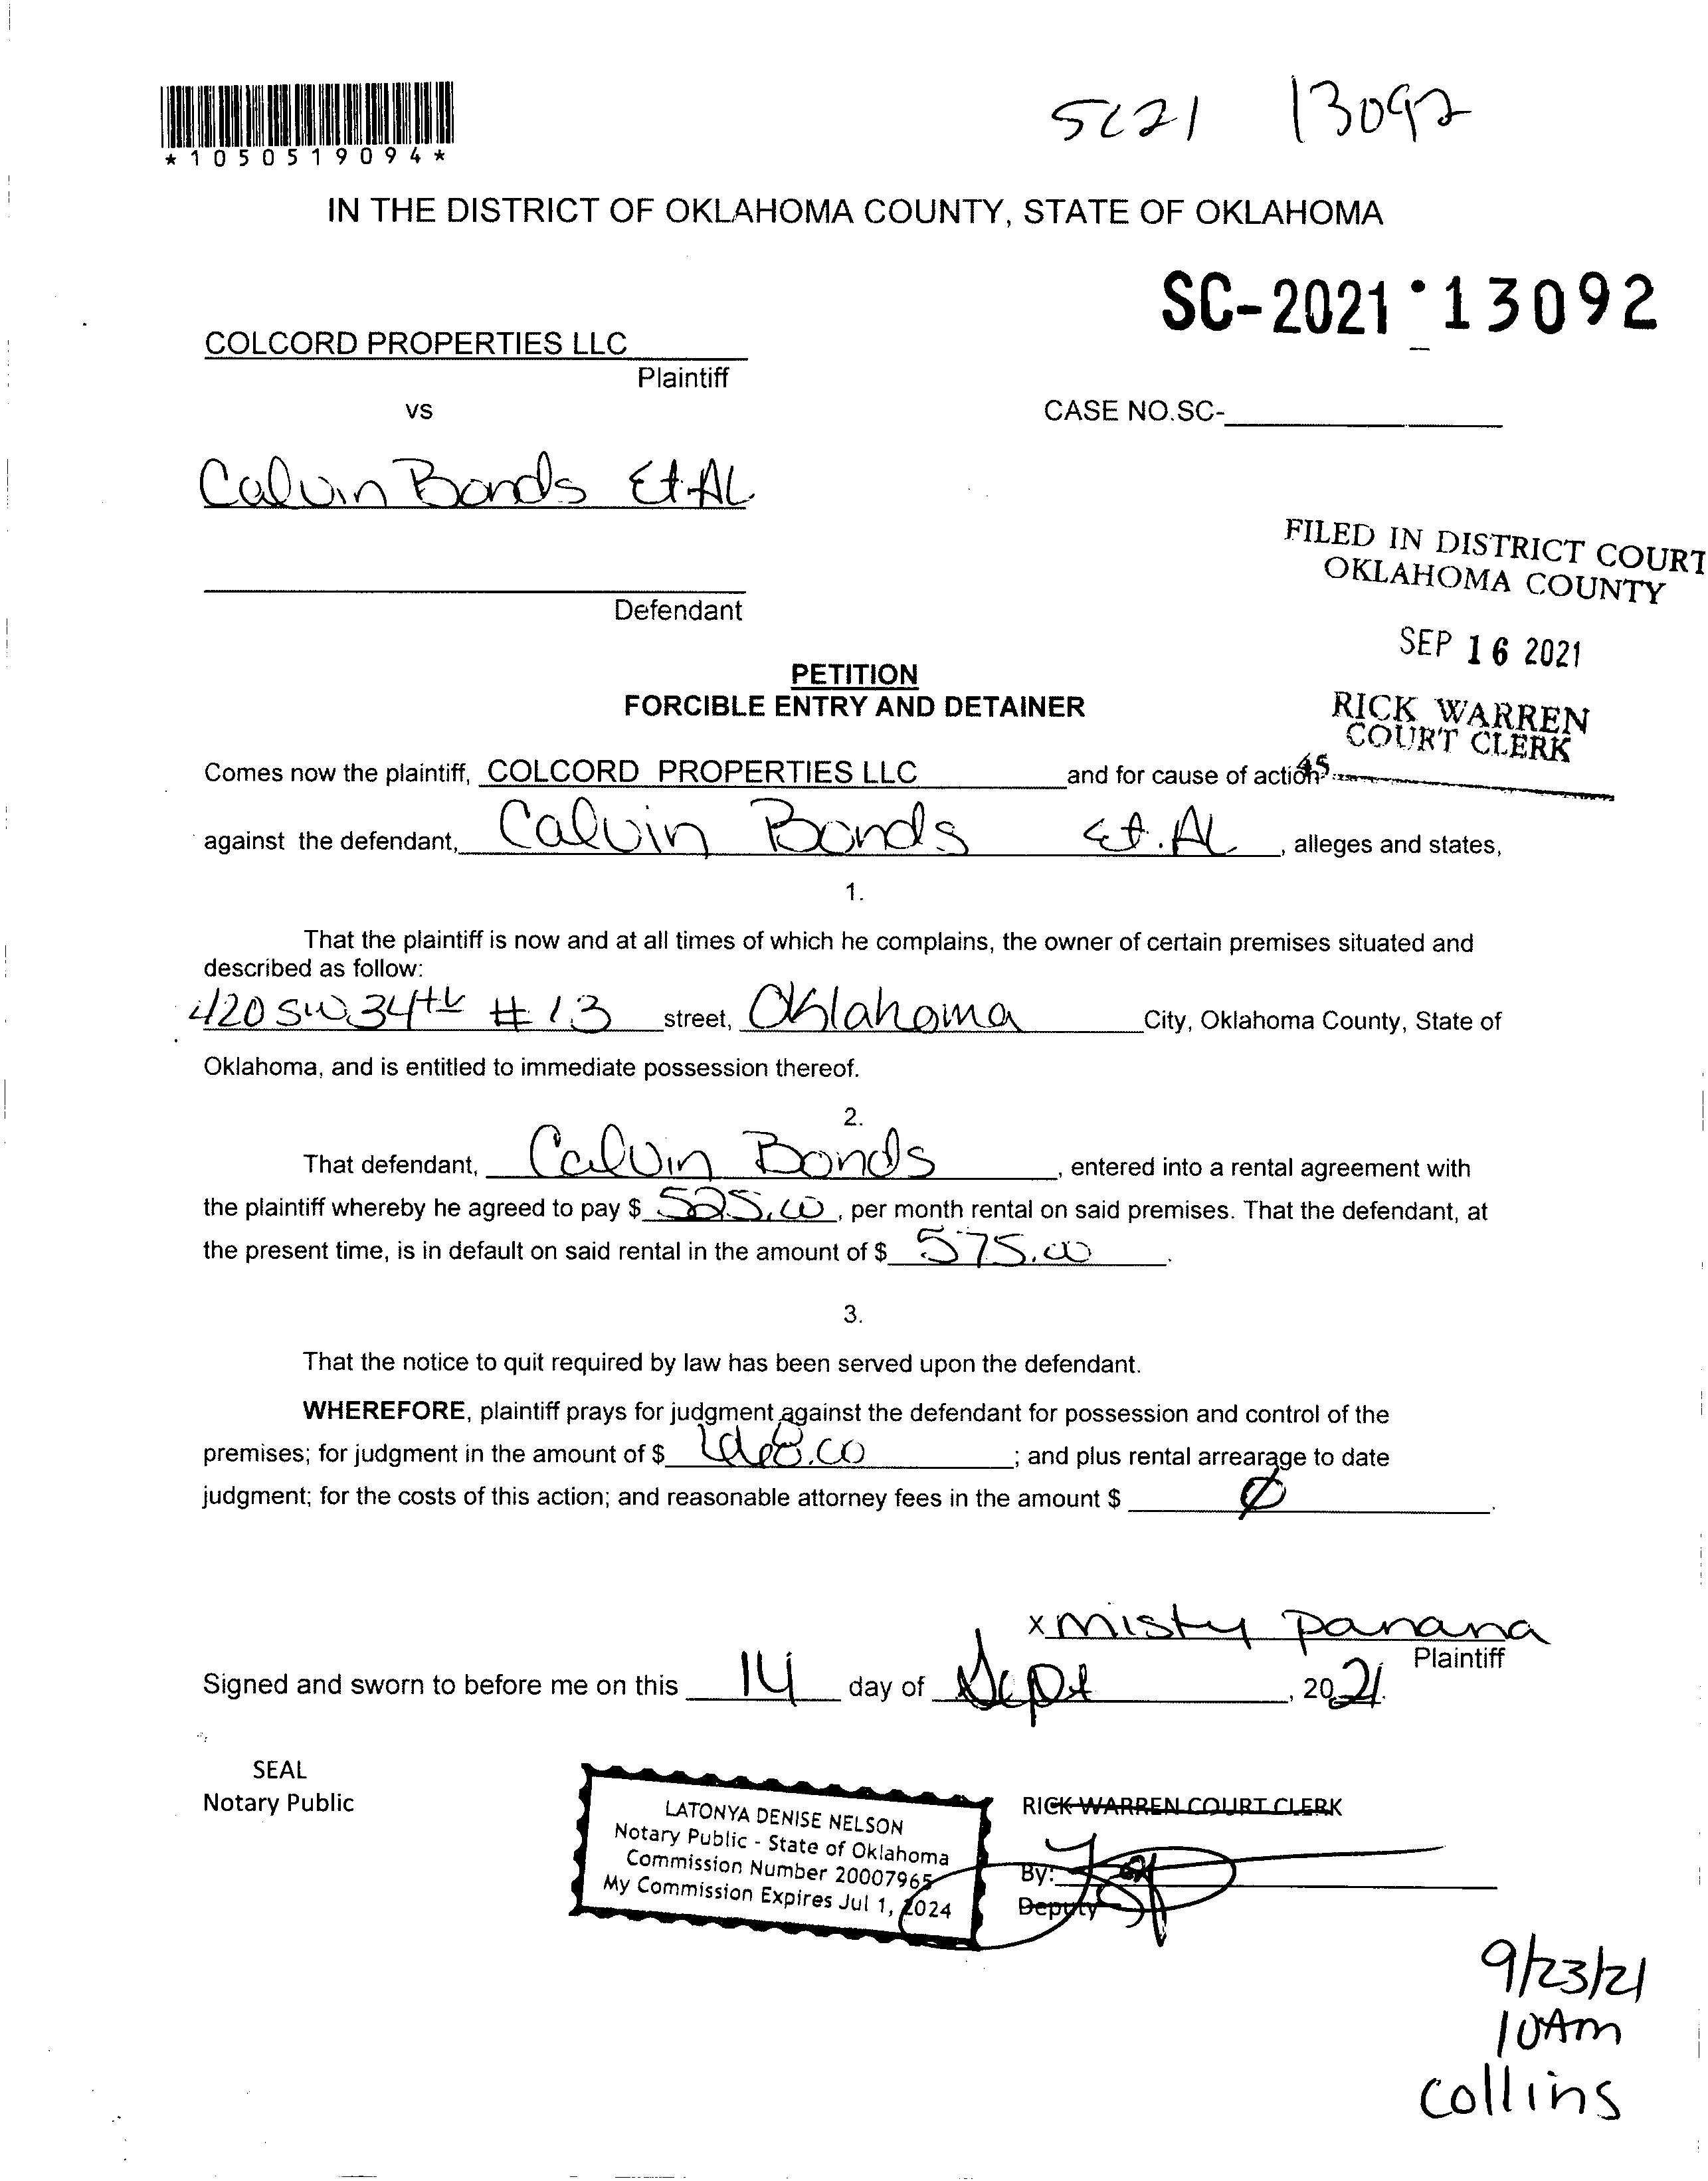 *1050519094*
SC21 13092
IN THE DISTRICT OF OKLAHOMA COUNTY, STATE OF OKLAHOMA
SC-2021 13092
COLCORD PROPERTIES LLC
Plaintiff
vs
CASE NO.SC-
Calvin Bonds Et AL
FILED IN DISTRICT COURT
OKLAHOMA COUNTY
Defendant
SEP 16 2021
PETITION
FORCIBLE ENTRY AND DETAINER
RICK WARREN
COURT CLERK
45
Comes now the plaintiff, COLCORD PROPERTIES LLC and for cause of action
against the defendant, Calvin Bonds Et. AL, alleges and states,
1.
That the plaintiff is now and at all times of which he complains, the owner of certain premises situated and
described as follow:
420 SW 34th #13 street, Oklahoma City, Oklahoma County, State of
Oklahoma, and is entitled to immediate possession thereof.
2.
That defendant, Calvin Bonds, entered into a rental agreement with
the plaintiff whereby he agreed to pay $ 525.00, per month rental on said premises. That the defendant, at
the present time, is in default on said rental in the amount of $ 575.00.
3.
That the notice to quit required by law has been served upon the defendant.
WHEREFORE, plaintiff prays for judgment against the defendant for possession and control of the
premises; for judgment in the amount of $ ; and plus rental arrearage to date
judgment; for the costs of this action; and reasonable attorney fees in the amount $ Ø.
x misty panana
Plaintiff
Signed and sworn to before me on this 14 day of Sept, 2021.
SEAL
Notary Public
LATONYA DENISE NELSON
Notary Public - State of Oklahoma
Commission Number 20007965
My Commission Expires Jul 1, 2024
RICK WARREN COURT CLERK
By:
Deputy
9/23/21
10Am
Collins